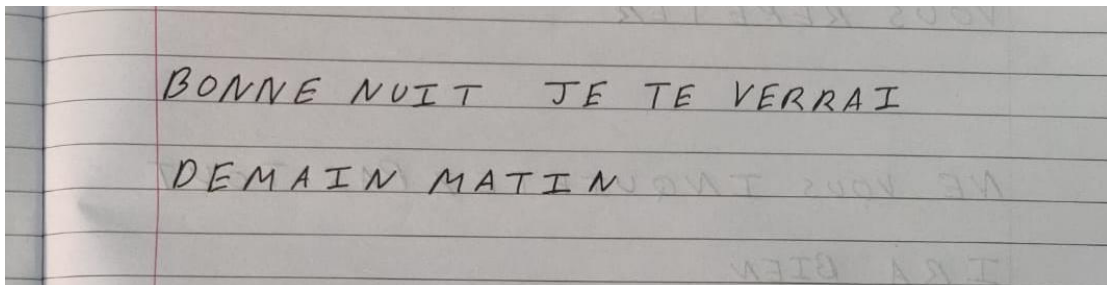 BONNE NUIT JE TE VERRAI
DEMAIN MATIN